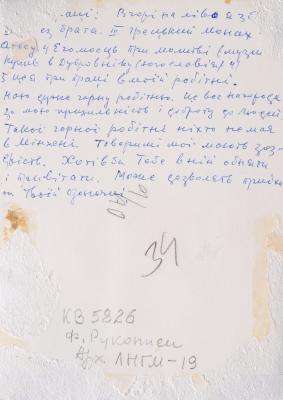 ...ані: Вгорі наліво я зі
... ез брата. III грецький монах
Атосу 4 Еголось при молитві (музи
купив в Дубровніку (Югославія) 4)
5 ще я при праці в моїй робітні.
Маю дуже гарну робітню. Це все нагорода
За мою прихильність і доброту до людей.
Такої гарної робітні ніхто не має
в Мінхені. Товариші мої мають заз-
дрість. Хотів би Тебе в ній обняти
і привітати. Може дозволять приїха
ти Твоїй
34
КВ 5826
ф. Рукописи
Арх ЛНГМ-19